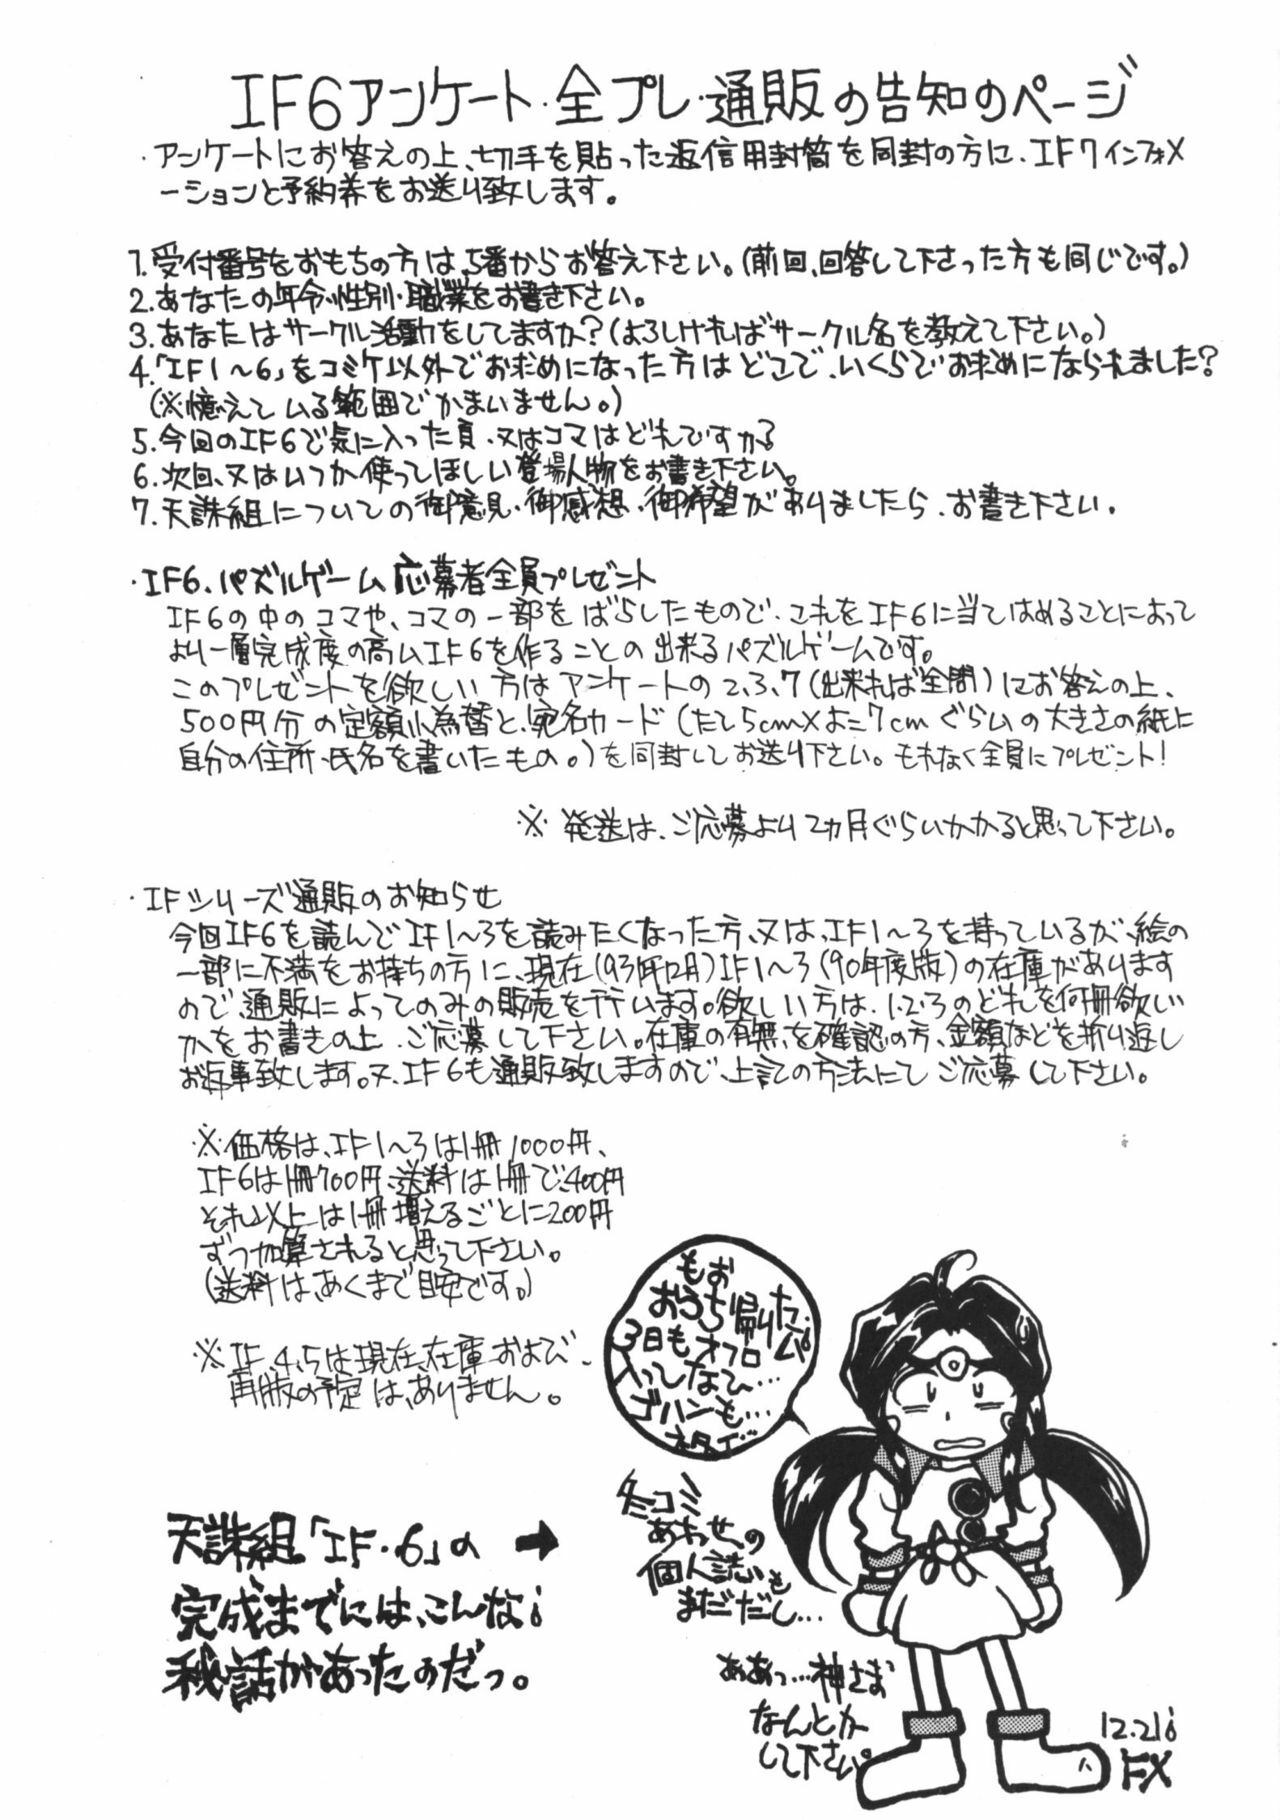 IF6アンケート・全プレ・通販の告知のページ
・アンケートにお答えの上、切手を貼った返信用封筒を同封の方に、IF7インフォメ
ーションと予約券をお送り致します。
1.受付番号をおもちの方は、5番からお答え下さい。(前回、回答して下さった方も同じです。)
2.あなたの年令・性別・職業をお書き下さい。
3.あなたはサークル活動をしてますか?(よろしければサークル名を教えて下さい。)
4.「IF1〜6」をコミケ以外でお求めになった方はどこで、いくらでお求めになられました?
(※憶えている範囲でかまいません。)
5.今回のIF6で気に入った頁、又はコマはどれですか?
6.次回、又はいつか使ってほしい登場人物をお書き下さい。
7.天誅組についての御意見・御感想・御希望がありましたら、お書き下さい。
・IF6、パズルゲーム応募者全員プレゼント
IF6の中のコマや、コマの一部をばらしたもので、これをIF6に当てはめることによって
より一層完成度の高いIF6を作ることの出来るパズルゲームです。
このプレゼントを欲しい方はアンケートの2、3、7(出来れば全問)にお答えの上、
500円分の定額小為替と、宛名カード(たて5cm×よこ7cmぐらいの大きさの紙に
自分の住所、氏名を書いたもの。)を同封してお送り下さい。もれなく全員にプレゼント!
※発送は、ご応募より2ヵ月ぐらいかかると思って下さい。
・IFシリーズ通販のお知らせ
今回IF6を読んでIF1〜3を読みたくなった方、又は、IF1〜3を持っているが、絵の
一部に不満をお持ちの方に、現在(93年12月)IF1〜3(90年度版)の在庫があります
ので、通販によってのみの販売を行います。欲しい方は、1・2・3のどれを何冊欲しい
かをお書きの上、ご応募して下さい。在庫の有無を確認の方、金額などを折り返し
お返事致します。又、IF6も通販致しますので、上記の方法にてご応募して下さい。
※価格は、IF1〜3は1冊1000円、
IF6は1冊700円、送料は1冊で、400円
それ以上は1冊増えるごとに200円
ずつ加算されると思って下さい。
(送料は、あくまで目安です。)
※IF4、5は現在、在庫および、
再版の予定は、ありません。
もお
おうち帰りたい
3日もオフロ
入ってなひ…
ゴハンも…
冬コミ
あわせの
個人誌も
まだだし…
ああっ…神さま
なんとか
して下さい。
天誅組「IF・6」の→
完成までには、こんな
秘話があったのだっ。
12.21
FX